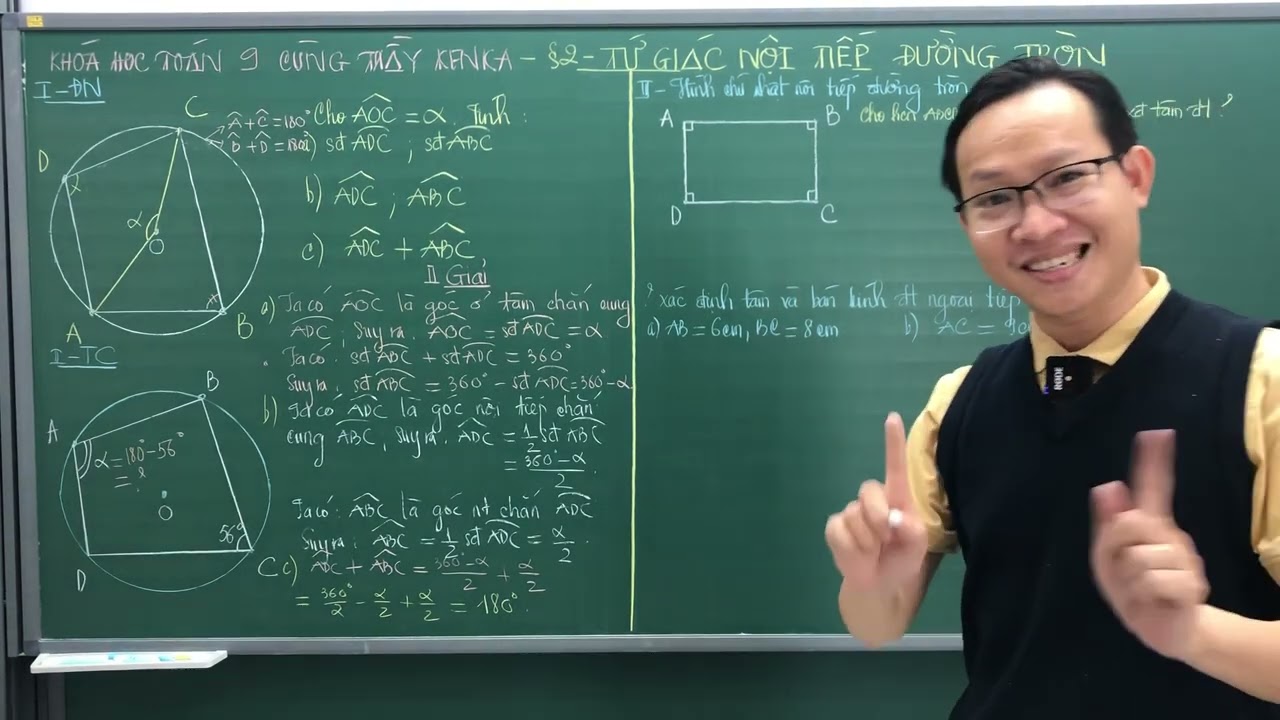 KHOÁ HỌC TOÁN 9 CÙNG THẦY KENKA - §2 - TỨ GIÁC NỘI TIẾP ĐƯỜNG TRÒN
I-ĐN
C
Â + Ĉ = 180°
B̂ + D̂ = 180°
D
α
O
A
B
Cho AOC = α. Tính:
a) sđ ADC ; sđ ABC
b) ADC ; ABC
c) ADC + ABC
Giải
a) Ta có AOC là góc ở tâm chắn cung
ADC; Suy ra: AOC = sđ ADC = α
Ta có: sđ ABC + sđ ADC = 360°
Suy ra: sđ ABC = 360° - sđ ADC = 360° - α
b) Ta có ADC là góc nội tiếp chắn
cung ABC, Suy ra: ADC = 1/2 sđ ABC
= (360° - α)/2
Ta có: ABC là góc nt chắn ADC
Suy ra: ABC = 1/2 sđ ADC = α/2
c) ADC + ABC = (360° - α)/2 + α/2
= 360°/2 - α/2 + α/2 = 180°.
I-TC
B
A
α = 180° - 56°
= ?
O
56°
D
C
II - Hình chữ nhật nội tiếp đường tròn
A
B
D
C
Cho hcn ABCD
đ tâm đt?
? xác định tâm và bán kính đt ngoại tiếp
a) AB = 6cm, BC = 8cm
b) AC =
RODE